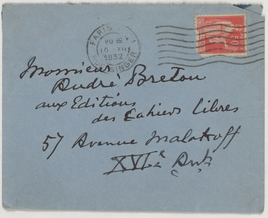 PARIS
1932
Monsieur
André Breton
aux Editions
des Cahiers Libres
57 Avenue Malakoff
XVIe Arrt